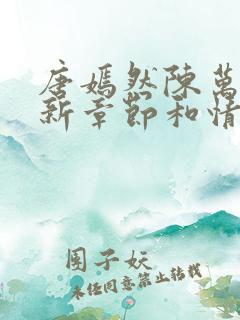 唐嫣然陳萬
新章節和情
團子妘
未经同意禁止转载